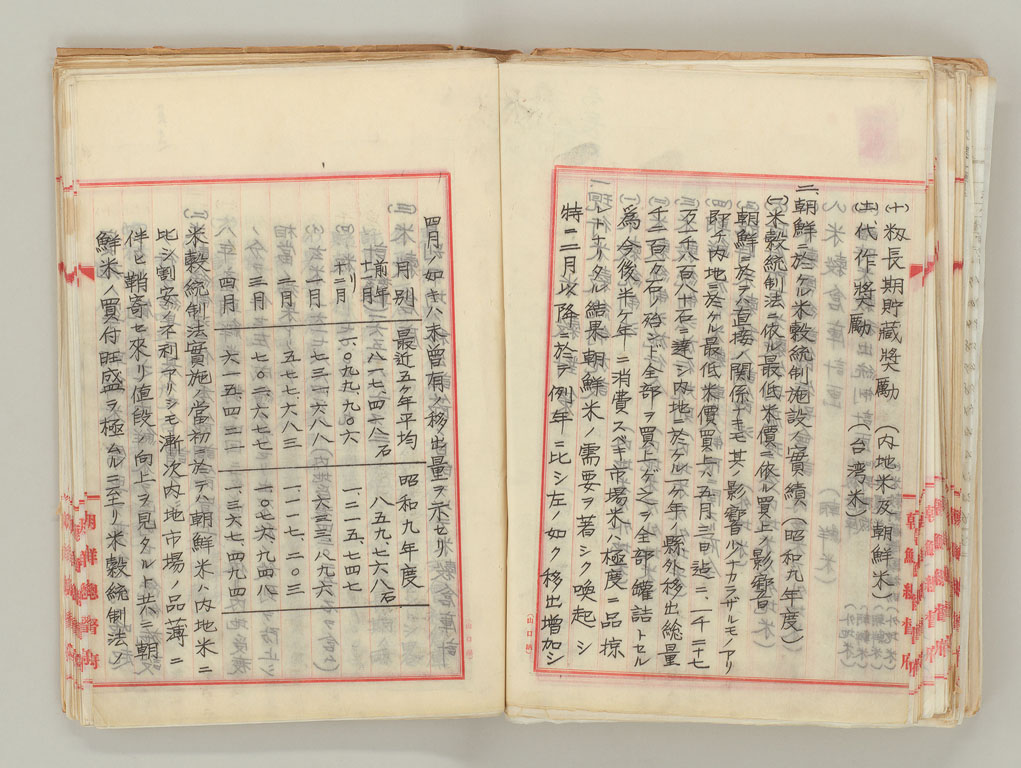 (十)籾長期貯蔵奨勵 (内地米及朝鮮米)
(土)代作奨勵 (台湾米)
二、朝鮮ニ於ケル米穀統制施設ノ實績 (昭和九年度)
(一)米穀統制法ニ依ル最低米價ニ依ル買上ノ影響
朝鮮ニ於テハ直接ノ関係ナキモ其ノ影響少ナカラザルモノアリ
即チ内地ニ於ケル最低米價買上ハ五月三回迠ニ一千二十七
万千八百八十石ニ達シ内地ニ於ケル一ケ年ノ縣外移出総量
千二百万石殆ンド全部ヲ買上ゲ之ヲ全部罐詰トセル
為今後半ケ年ニ消費スベキ市場米ハ極度ニ品掠
レトナリタル結果朝鮮米ノ需要ヲ著シク喚起シ
特ニ二月以降ニ於テ例年ニ比シ左ノ如ク移出増加シ
四月ノ如キハ未曽有ノ移出量ヲ示セリ
月別 最近五ケ年平均 昭和九年度
前年十一月 八一七、四六八石 八五九、七六八石
十二月 六〇九、九〇六 一、二一五、七四七
一月 七三一、六八八 六三三、八九六
二月 五七七、六八三 一、一一七、二〇三
三月 七〇二、六七七 一、〇七六、九四八
四月 六一五、四二一 一、三六七、四九四
(二)米穀統制法實施ノ當初ニ於テハ朝鮮米ハ内地米ニ
比シ割安ノ不利アリシモ漸次内地市場ノ品薄ニ
伴ヒ鞘寄セ來リ値段ノ向上ヲ見タルト共ニ朝
鮮米ノ買付旺盛ヲ極ムルニ至リ米穀統制法ノ
朝鮮總督府